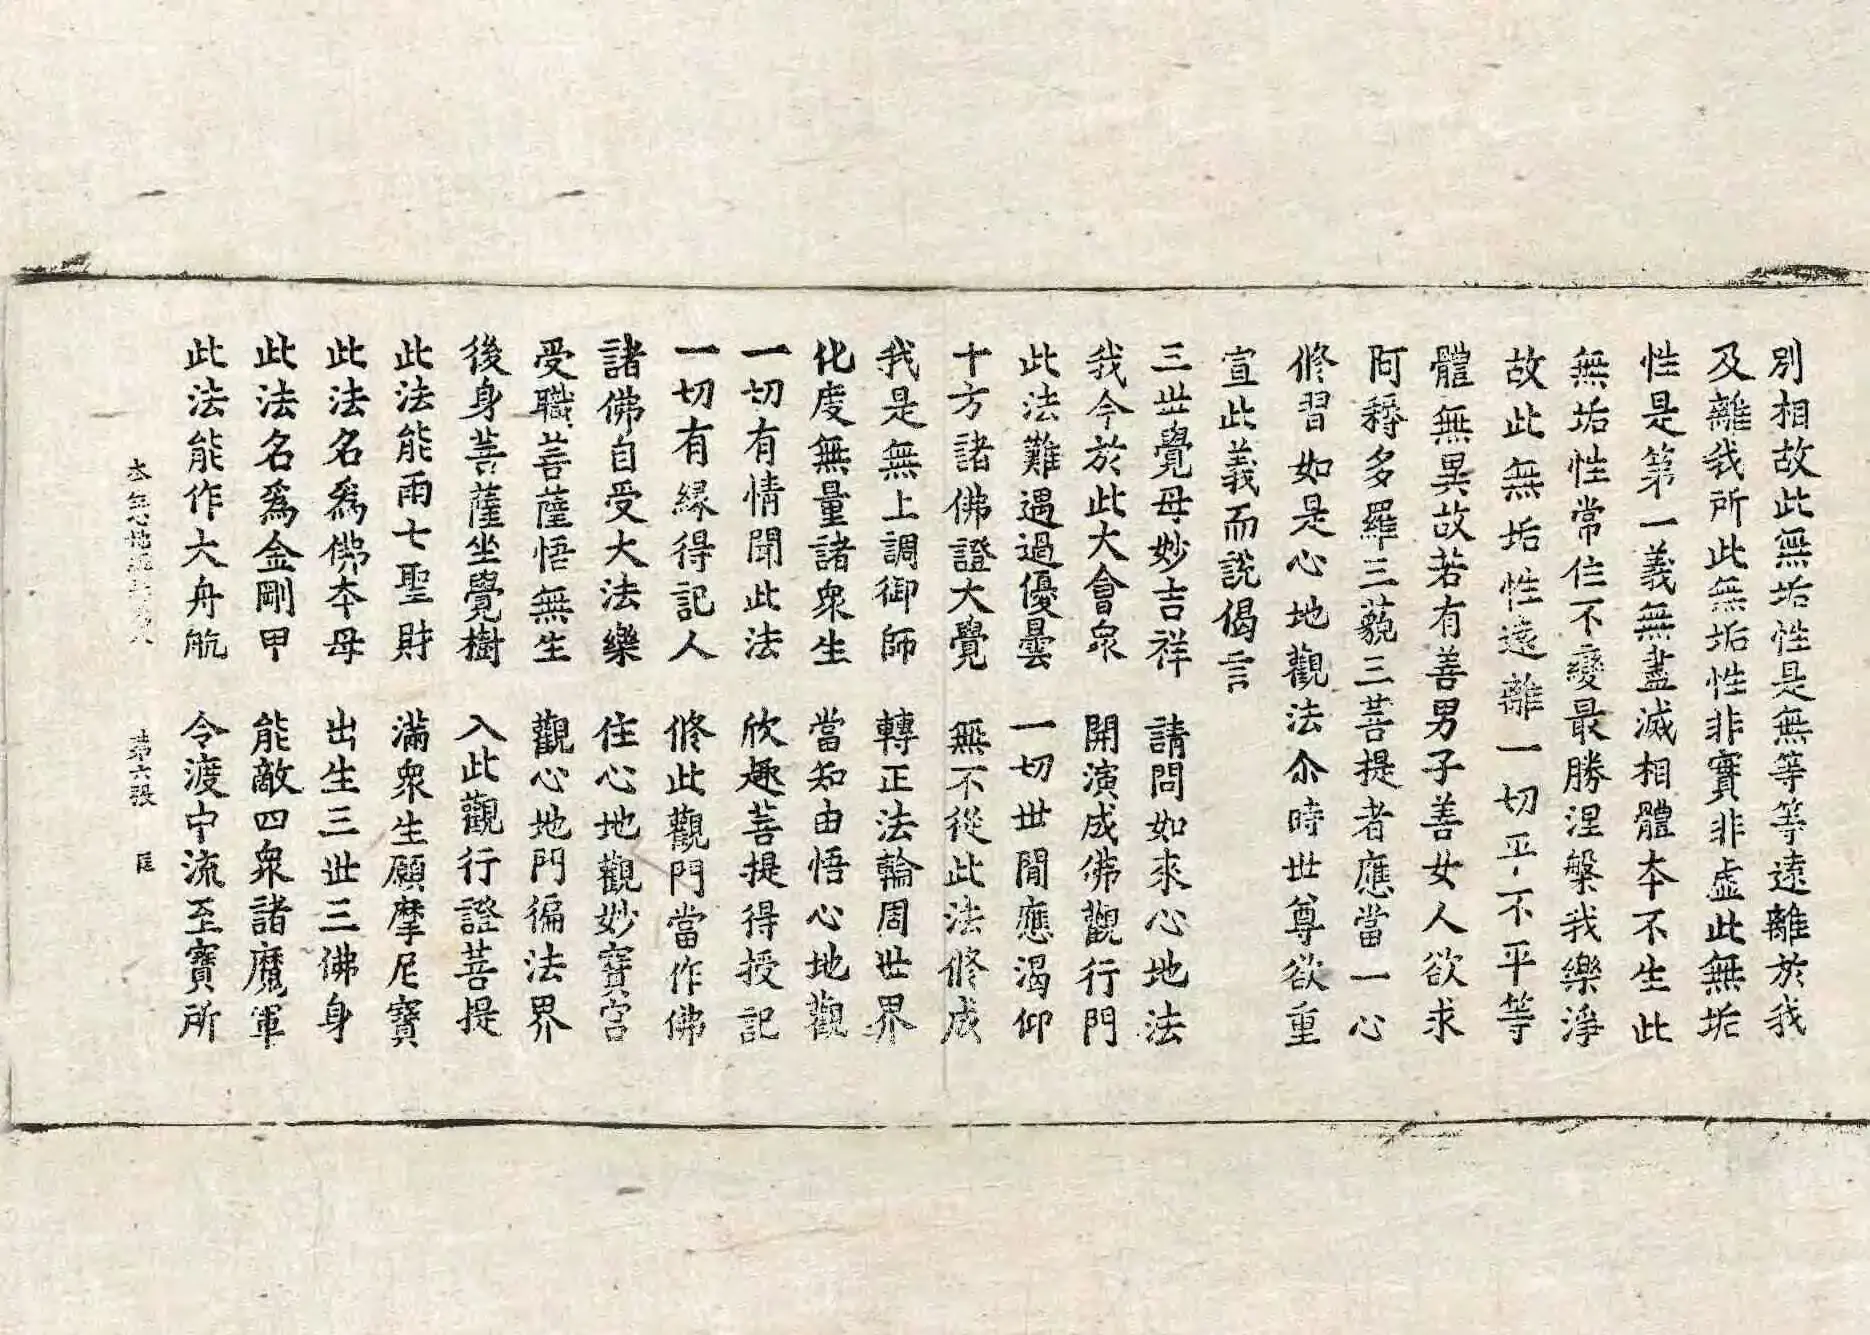 別相故此無垢性是無等等遠離於我
及離我所此無垢性非實非虛此無垢
性是第一義無盡滅相體本不生此
無垢性常住不變最勝涅槃我樂淨
故此無垢性遠離一切平不平等
體無異故若有善男子善女人欲求
阿耨多羅三藐三菩提者應當一心
修習如是心地觀法尒時世尊欲重
宣此義而說偈言
三世覺母妙吉祥　請問如來心地法
我今於此大會衆　開演成佛觀行門
此法難遇過優曇　一切世間應渴仰
十方諸佛證大覺　無不從此法修成
我是無上調御師　轉正法輪周世界
化度無量諸衆生　當知由悟心地觀
一切有情聞此法　欣趣菩提得授記
一切有緣得記人　修此觀門當作佛
諸佛自受大法樂　住心地觀妙寶宮
受職菩薩悟無生　觀心地門徧法界
後身菩薩坐覺樹　入此觀行證菩提
此法能雨七聖財　滿衆生願摩尼寶
此法名爲佛本母　出生三世三佛身
此法名爲金剛甲　能敵四衆諸魔軍
此法能作大舟航　令渡中流至寶所
本　心地　　第六張